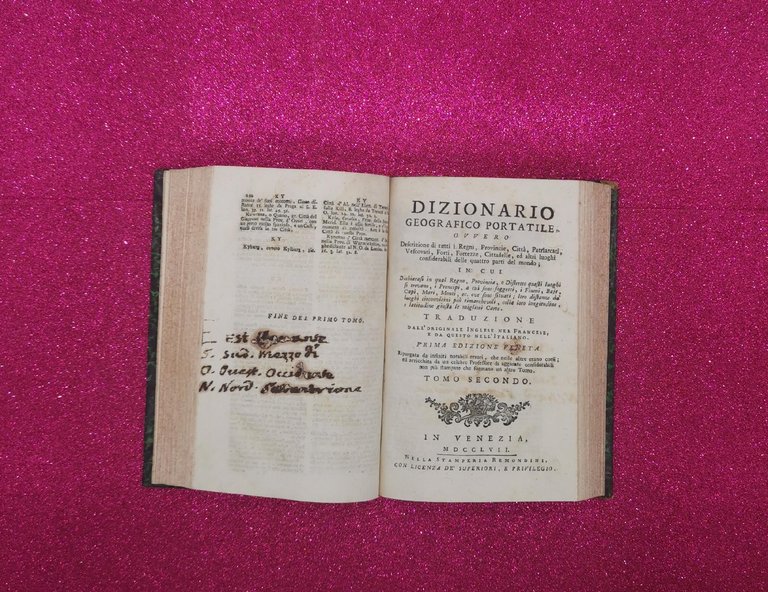 XY
KY
KY
Kyburg, ovvero Kylburg, sic.
FINE DEL PRIMO TOMO.
E Est
S. Sud. Mezzo di
O. Ouest. Occidente
N. Nord. Settentrione
DIZIONARIO
GEOGRAFICO PORTATILE,
OVVERO
Descrizione di tutti i Regni, Provincie, Città, Patriarcati,
Vescovati, Forti, Fortezze, Cittadelle, ed altri luoghi
considerabili delle quattro parti del mondo;
IN CUI
Dichiarasi in qual Regno, Provincia, e Distretto questi luoghi
si trovano, i Principi, a cui sono soggetti, i Fiumi, Baje,
Capi, Mari, Monti, ec. ove sono situati; loro distanza da'
luoghi circonvicini più rimarchevoli, colla loro longitudine,
e latitudine giusta le migliori Carte.
TRADUZIONE
DALL'ORIGINALE INGLESE NEL FRANCESE,
E DA QUESTO NELL'ITALIANO.
PRIMA EDIZIONE VENETA
Ripurgata da infiniti notabili errori, che nelle altre erano corsi;
ed arricchita da un celebre Professore di aggiunte considerabili
non più stampate che formano un altro Tomo.
TOMO SECONDO.
IN VENEZIA,
MDCCLVII.
NELLA STAMPERIA REMONDINI.
CON LICENZA DE' SUPERIORI, E PRIVILEGIO.